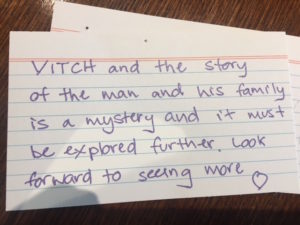 VITCH and the story
of the man and his family
is a mystery and it must
be explored further. Look
forward to seeing more